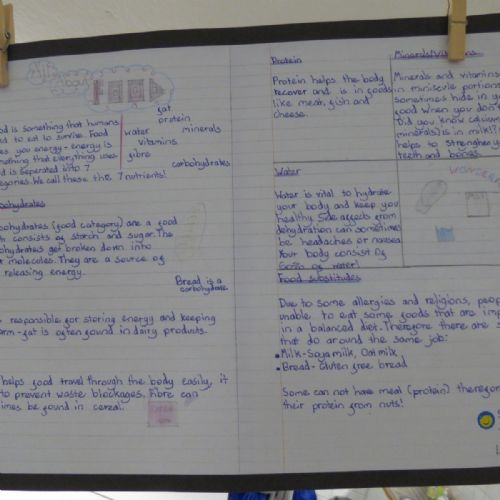 fat
protein
minerals
water
vitamins
fibre
carbohydrates
is something that humans
to eat to survive. Food
you energy - energy is
that everything uses
is seperated into 7
We call these the 7 nutrients!
(food category) are a food
consists of starch and sugar. The
get broken down into
molecules. They are a source of
releasing energy.
Bread is a
carbohydrate
responsible for storing energy and keeping
fat is often found in dairy products.
helps food travel through the body easily, it
to prevent waste blockages. Fibre can
be found in cereal.
Protein
Protein helps the body
recover and is in foods
like meat, fish and
cheese.
Minerals/Vitamins
Minerals and vitamins
in miniscule portions
sometimes hide in
food when you don't
Did you know calcium
mineral) is in milk!?
helps to strengthen
teeth and bones.
Water
Water is vital to hydrate
your body and keep you
healthy. Side affects from
dehydration can sometimes
be headaches or nausea.
Your body consist of
60% of water!
Food substitutes
Due to some allergies and religions,
unable to eat some foods that are
in a balanced diet. Therefore there are
that do around the same job:
• Milk - Soya milk, Oat milk,
• Bread - Gluten free bread
Some can not have meat (protein)
their protein from nuts!